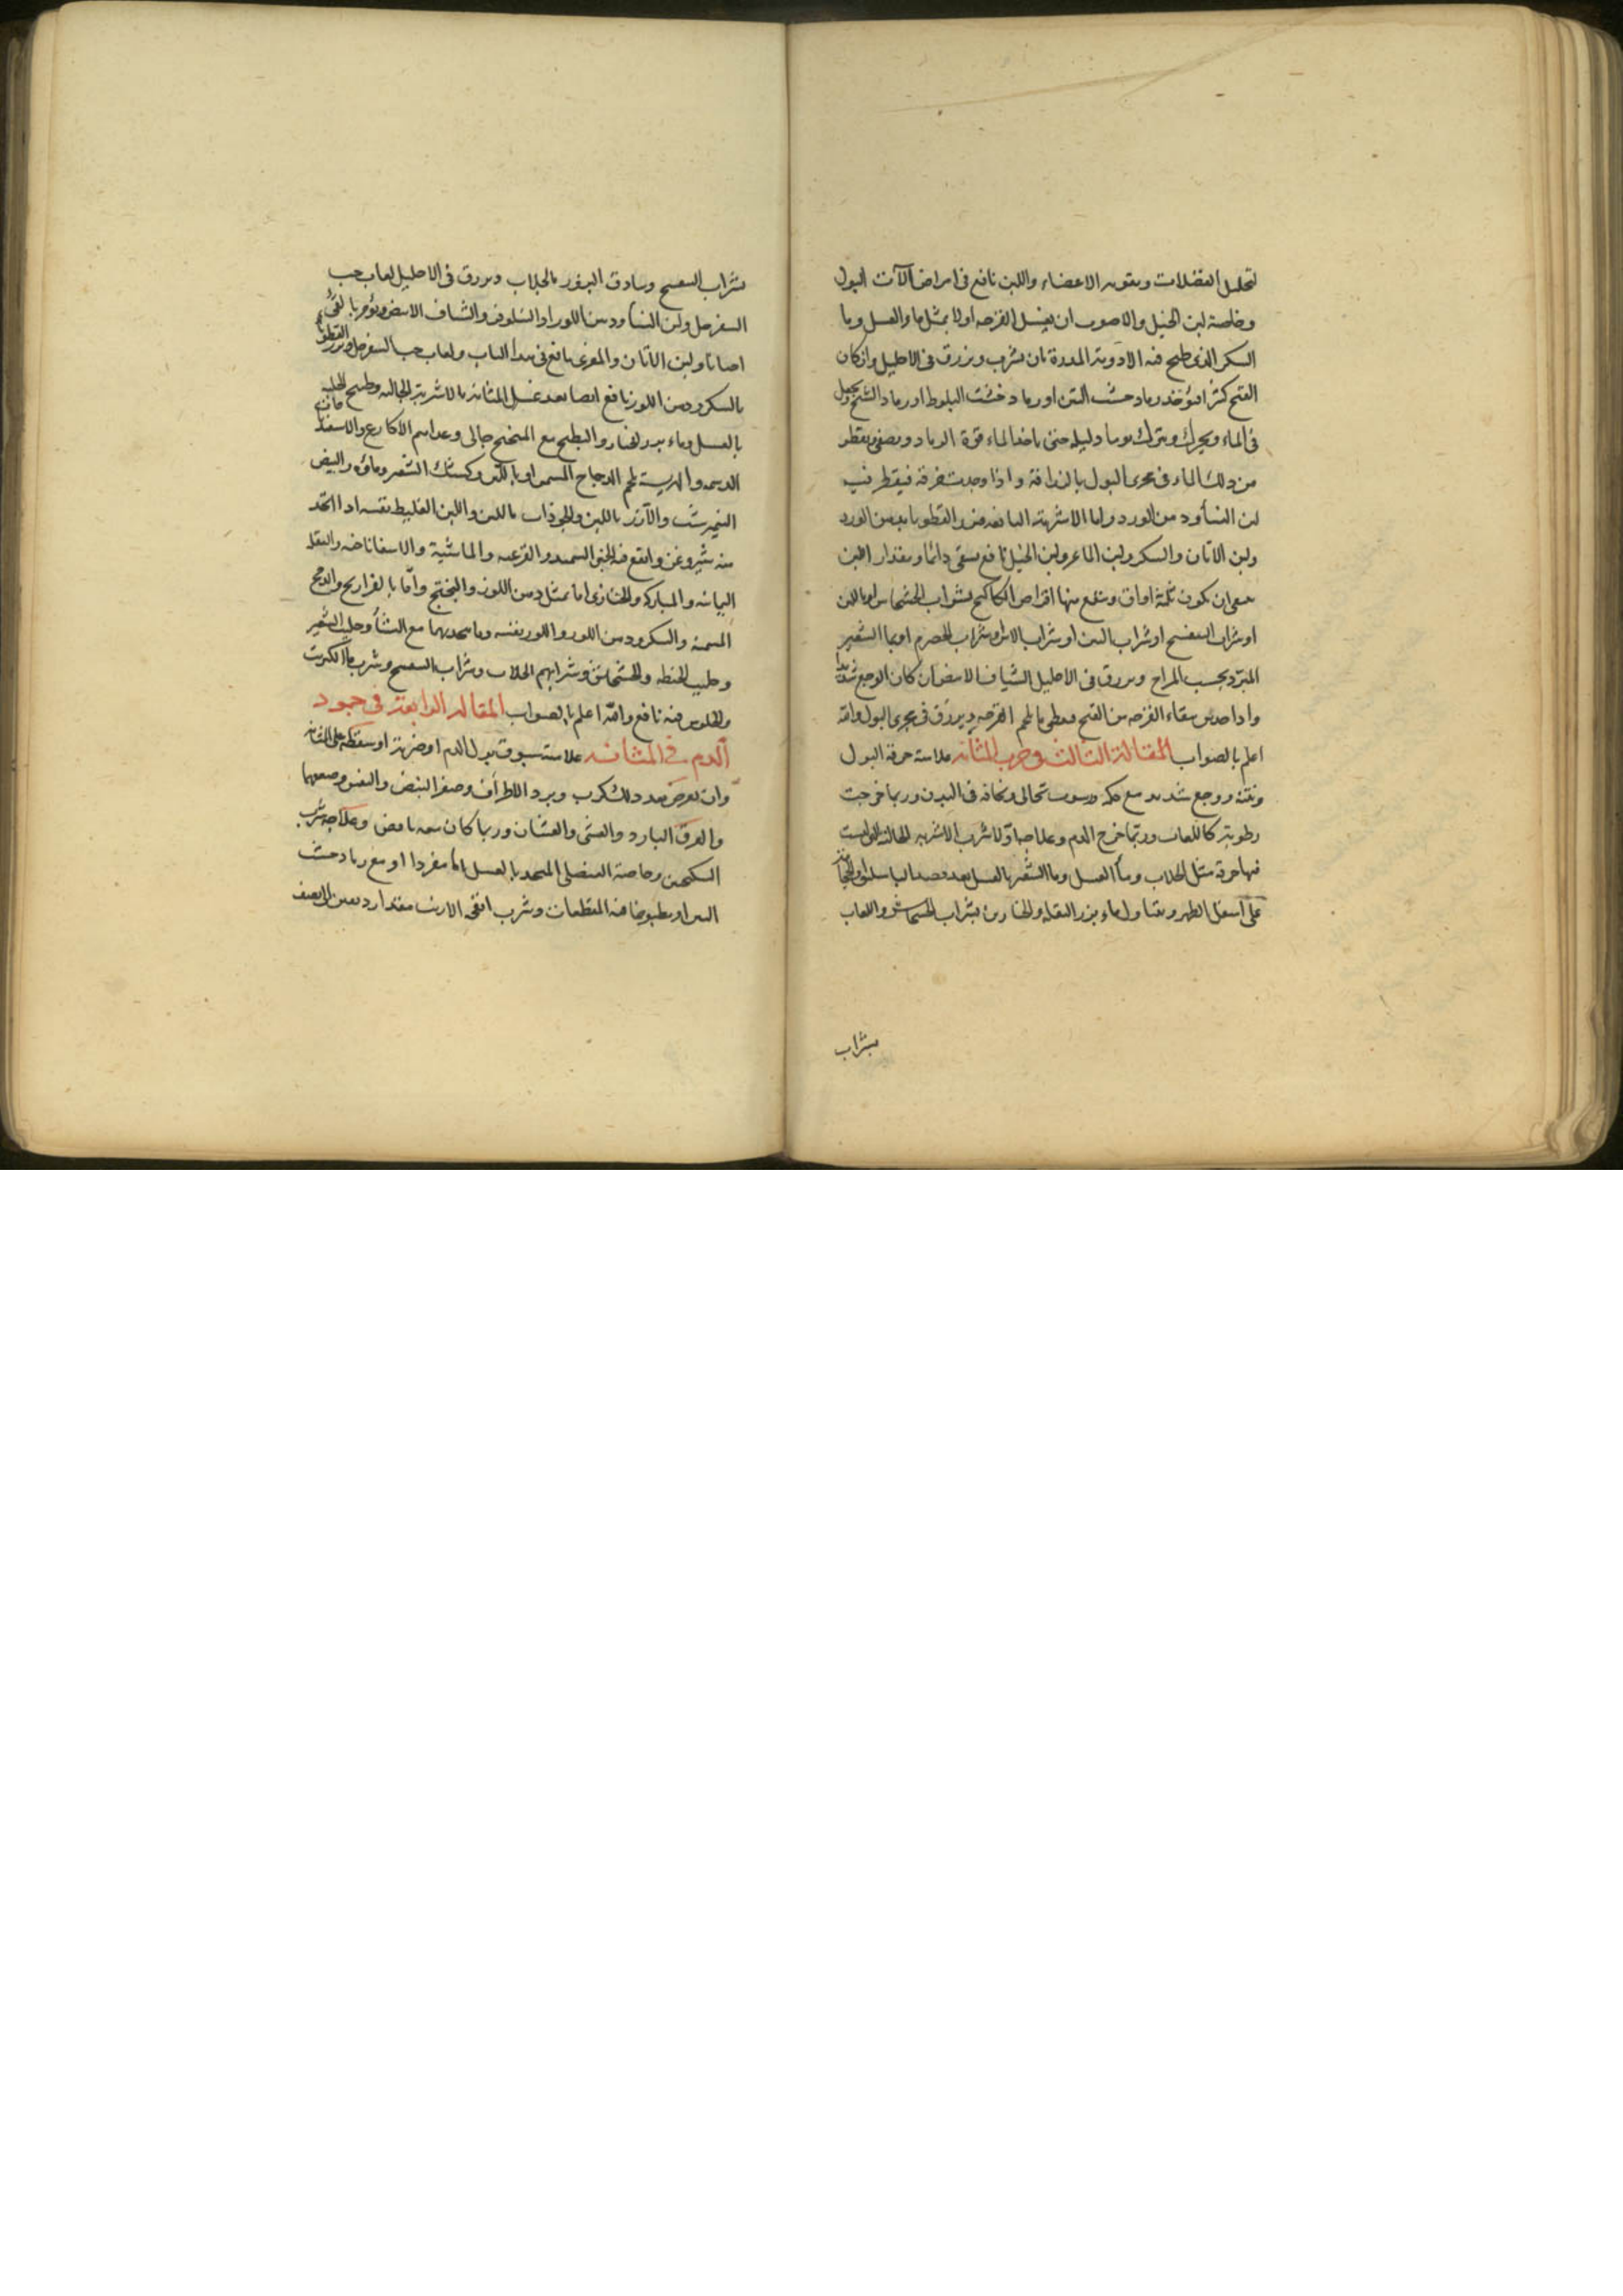 لتحليل الفضلات وتقوية الاعضاء واللبن نافع فى امراض آلات البول
وخاصة لبن الخيل والاصوب ان يغسل القرحه اولا بمثل ماء العسل وما
السكر الذى طبخ فيه الادوية المدرة بان يشرب ويزرق فى الاحليل وان كان
القيح كثيرا فيؤخذ رماد خشب التين او رماد خشب البلوط او رماد الشيح ويجعل
فى الماء ويحرك ويترك يوما وليلة حتى ياخذ الماء قوة الرماد ويصفى يقطر
من ذلك الماء فى مجرى البول بالزراقة واذا وجدت خرقة فيقطر فيه
لبن النسأ ودهن الورد واما الاشربة النافعه فبزر القطونا بدهن الورد
ولبن الاتان والسكر ولبن الماعز ولبن الخيل نافع يسقى دائما ومقدار اللبن
ينبغى ان يكون ثلثة اواق ويتبع منها اقراص الكاكنج بشراب الخشخاش او باللبن
او شراب البنفسج او شراب التين او شراب الاس او شراب الحصرم او بماء الشعير
المبرد بحسب المزاج ويزرق فى الاحليل الشياف الابيض ان كان الوجع شديدا
واذا حدس بنقاء القرحه من القيح فيعطى ما يلحم القرحه ويزرق فى مجرى البول والله
اعلم بالصواب المقالة الثالثة فى جرب المثانة علامته حرقة البول
ونتنه ووجع شديد مع حكة ورسوب نخالى ونحافة فى البدن وربما خرجت
رطوبة كاللعاب وربما خرج الدم وعلاجه اولا شرب الاشربه الجالية التى ليست
فيها حرقة مثل الجلاب ومأ العسل وما الشعير بالعسل بعد فصد الباسليق والحجامة
على اسفل الظهر ويتناول ماء بزر البقلة والخيارين بشراب الخشخاش واللعاب
بشراب
شراب البنفسج وبنادق البزور بالجلاب ويزرق فى الاحليل لعاب حب
السفرجل ولبن النسأ ودهن اللوز او النيلوفر والشياف الابيض ويؤمر بالقئ
احيانا ولبن الاتان والمعزى نافع فى هذا الباب ولعاب حب السفرجل وبزر القطونا
بالسكر ودهن اللوز نافع ايضا بعد غسل المثانة بالاشربة الجاليه وطبيخ الحلبه
بالعسل وماء بزر الخيار والبطيخ مع الميبختج جالى وغذاهم الاكارع والاسفيدباجات
الدسمه والهريسة بلحم الدجاج المسمن او بالبن وكشك الشعير ومائه والبيض
النيمرشت والارز باللبن والجوذاب باللبن واللبن الغليط نفسه اذا اتخذ
منه شيروغن وانقع فيه الخبز السميد والقرعيه والماشية والاسفاناخيه والبقلة
اليمانيه والمباركه والخبازى اما بمثل دهن اللوز والبختج واما بالفراريج والدجاج
المسمنه والسكر ودهن اللوز واللوز نفسه وما يتخذ بهما مع النشأ وحليب الشعير
وحليب الحنطه والخشخاش وشرابهم الجلاب وشراب البنفسج وشرب ماء الكبريت
والجلوس فيه نافع والله اعلم بالصواب المقالة الرابعة فى جمود
الدم فى المثانه علامته سبوق بول الدم او ضربة او سقطة على المثانة
وان يعرض بعد ذلك كرب وبرد الاطراف وصغر النبض والنفس وضعفهما
والعرق البارد والغشى والغثيان وربما كان معه نافض وعلاجه شرب
السكنجبين وخاصة العنصلى المتخذ بالعسل اما مفردا او مع رماد خشب
التين او مطبوخا فيه المقطعات وشرب انفحه الارنب مقدار درهمين الى نصف